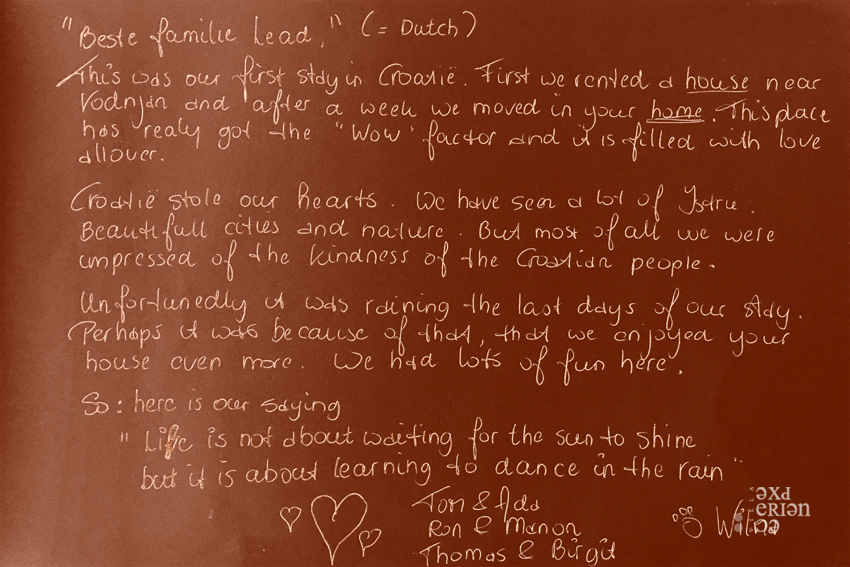 "Beste familie Lead," (= Dutch)
This was our first stay in Croatië. First we rented a house near
Vodnjan and after a week we moved in your home. This place
has realy got the "Wow" factor and it is filled with love
allover.
Croatië stole our hearts. We have seen a lot of Istrie.
Beautifull cities and nature. But most of all we were
impressed of the kindness of the Croatian people.
Unfortunedly it was raining the last days of our stay.
Perhaps it was because of that, that we enjoyed your
house even more. We had lots of fun here.
So: here is our saying
"Life is not about waiting for the sun to shine
but it is about learning to dance in the rain"
Ton & Ada
Ron & Manon
Thomas & Birgit
Wilna